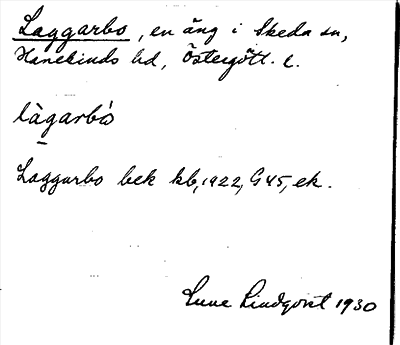 Laggarbo, en äng i Skeda sn,
Hanekinds hd, Östergötl. l.
làgarbò
Laggarbo bek kb, 1922, G45, ek.
Sune Lindqvist 1930